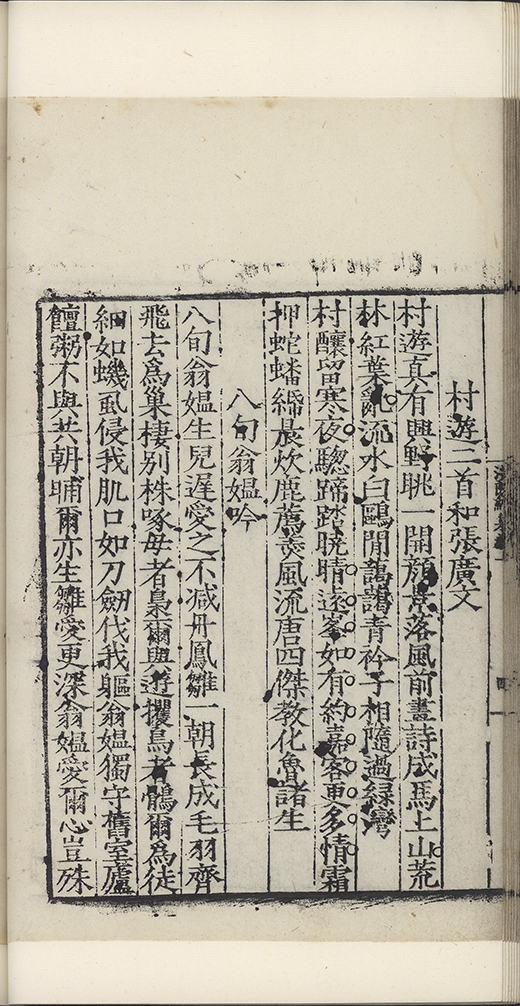 村遊二首和張廣文
村遊真有興野眺一開顏景落風前畫詩成馬上山荒
林紅葉亂流水白鷗閒藹藹青衿子相隨過綠灣
村釀留寒夜驄蹄踏曉晴遠峯如有約嘉客更多情霜
押蛇蟠綈晨炊鹿薦羙風流唐四傑教化魯諸生
八旬翁媪吟
八旬翁媪生兒遲愛之不减丹鳳雛一朝長成毛羽齊
飛去為巢棲別株啄母者梟爾與遊攫鳥者鶻爾為徒
細如蟣虱侵我肌口如刀劒伐我軀翁媪獨守舊室廬
饘粥不與共朝晡爾亦生雛愛更深翁媪愛爾心豈殊